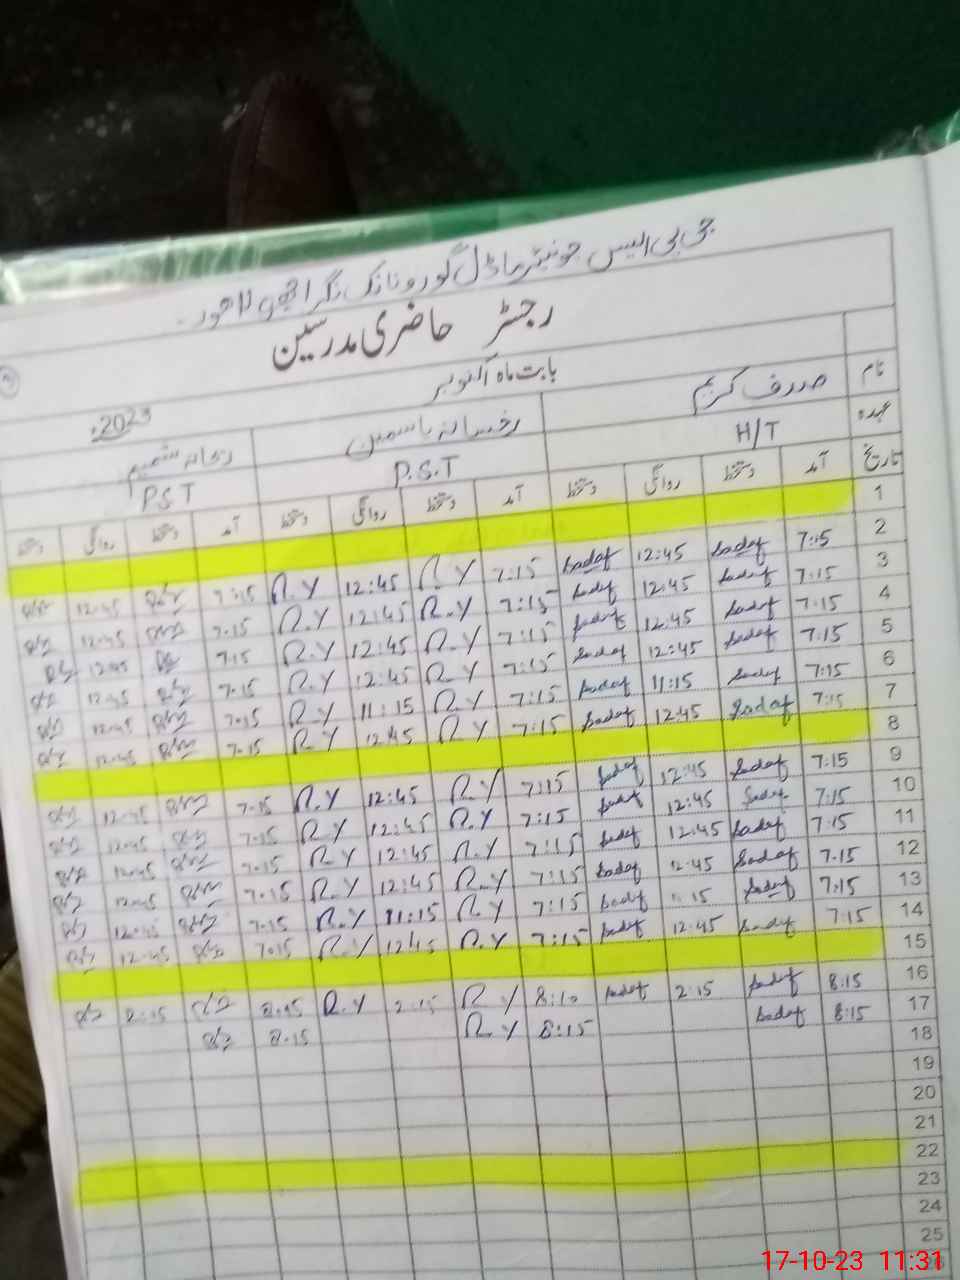 جی پی ایس جونیئر ماڈل گورونانک نگر اچھرہ لاہور۔
رجسٹر حاضری مدرسین
بابت ماہ اکتوبر 2023ء
نام صدف کریم رخسانہ یاسمین ریحانہ شمیم
عہدہ H/T P.S.T PST
تاریخ آمد دستخط روانگی دستخط آمد دستخط روانگی دستخط آمد دستخط روانگی دستخط
1
2 7:15 Sadaf 12:45 Sadaf 7:15 R.Y 12:45 R.Y 7:15 12:45
3 7:15 Sadaf 12:45 Sadaf 7:15 R.Y 12:45 R.Y 7.15 12:45
4 7:15 Sadaf 12:45 Sadaf 7:15 R.Y 12:45 R.Y 7.15 12:45
5 7:15 Sadaf 12:45 Sadaf 7:15 R.Y 12:45 R.Y 7.15 12:45
6 7:15 Sadaf 11:15 Sadaf 7:15 R.Y 11:15 R.Y 7.15
7 7:15 Sadaf 12:45 Sadaf 7:15 R.Y 12:45 R.Y 7.15 12:45
8
9 7:15 Sadaf 12:45 Sadaf 7:15 R.Y 12:45 R.Y 7.15 12:45
10 7:15 Sadaf 12:45 Sadaf 7:15 R.Y 12:45 R.Y 7.15 12:45
11 7:15 Sadaf 12:45 Sadaf 7:15 R.Y 12:45 R.Y 7.15 12:45
12 7.15 Sadaf 12:45 Sadaf 7:15 R.Y 12:45 R.Y 7.15 12:45
13 7:15 Sadaf 15 Sadaf 7:15 R.Y 11:15 R.Y 7.15
14 7:15 Sadaf 12:45 Sadaf 7:15 R.Y 12:45 R.Y 7.15 12:45
15
16 8:15 Sadaf 2:15 Sadaf 8:10 R.Y 2:15 R.Y 2:15
17 8:15 Sadaf 8:15 R.Y 8.15
18
19
20
21
22
23
24
25
17-10-23 11:31